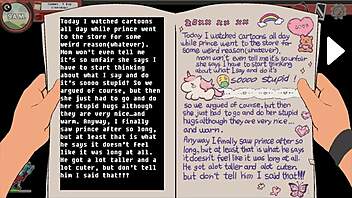 9 AM
Today I watched cartoons
all day while prince went
to the store for some
weird reason(whatever).
Mom won't even tell me
it's so unfair she says I
have to start thinking
about what I say and do
it's soooo stupid! So we
argued of course, but then
she just had to go and do
her stupid hugs although
they are very nice…and
warm. Anyway, I finally
saw prince after so long,
but at least that is what
he says it doesn't feel
like it was long at all.
He got a lot taller and a
lot cuter, but don't tell
him I said that!!!
28xx xx xx
Today I watched cartoons all day
while prince went to the store for
some weird reason(whatever).
mom won't even tell me it's so unfair
she says I have to start thinking
about what I say and do it's
soooo stupid!
so we argued of course, but then
she just had to go and do her stupid
hugs although they are very nice...
and warm.
Anyway I finally saw prince after
so long, but at least that is what he says
it doesn't feel like it was long at all.
He got alot taller and alot cuter,
but don't tell him I said that!!!